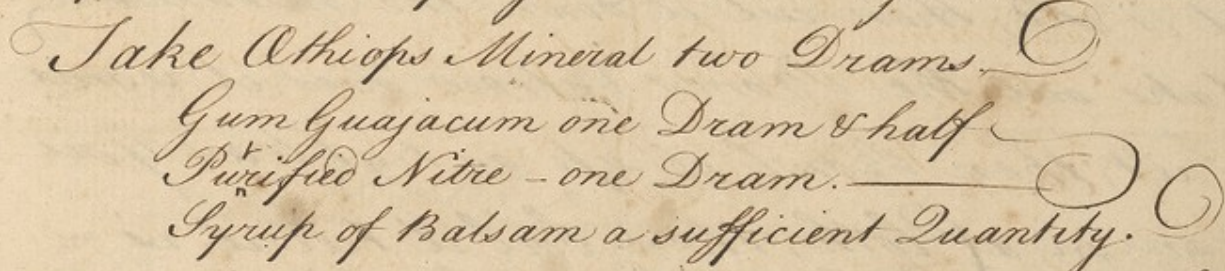 Take Æthiops Mineral two Drams.
Gum Guajacum one Dram & half
Purified Nitre - one Dram.
Syrup of Balsam a sufficient Quantity.